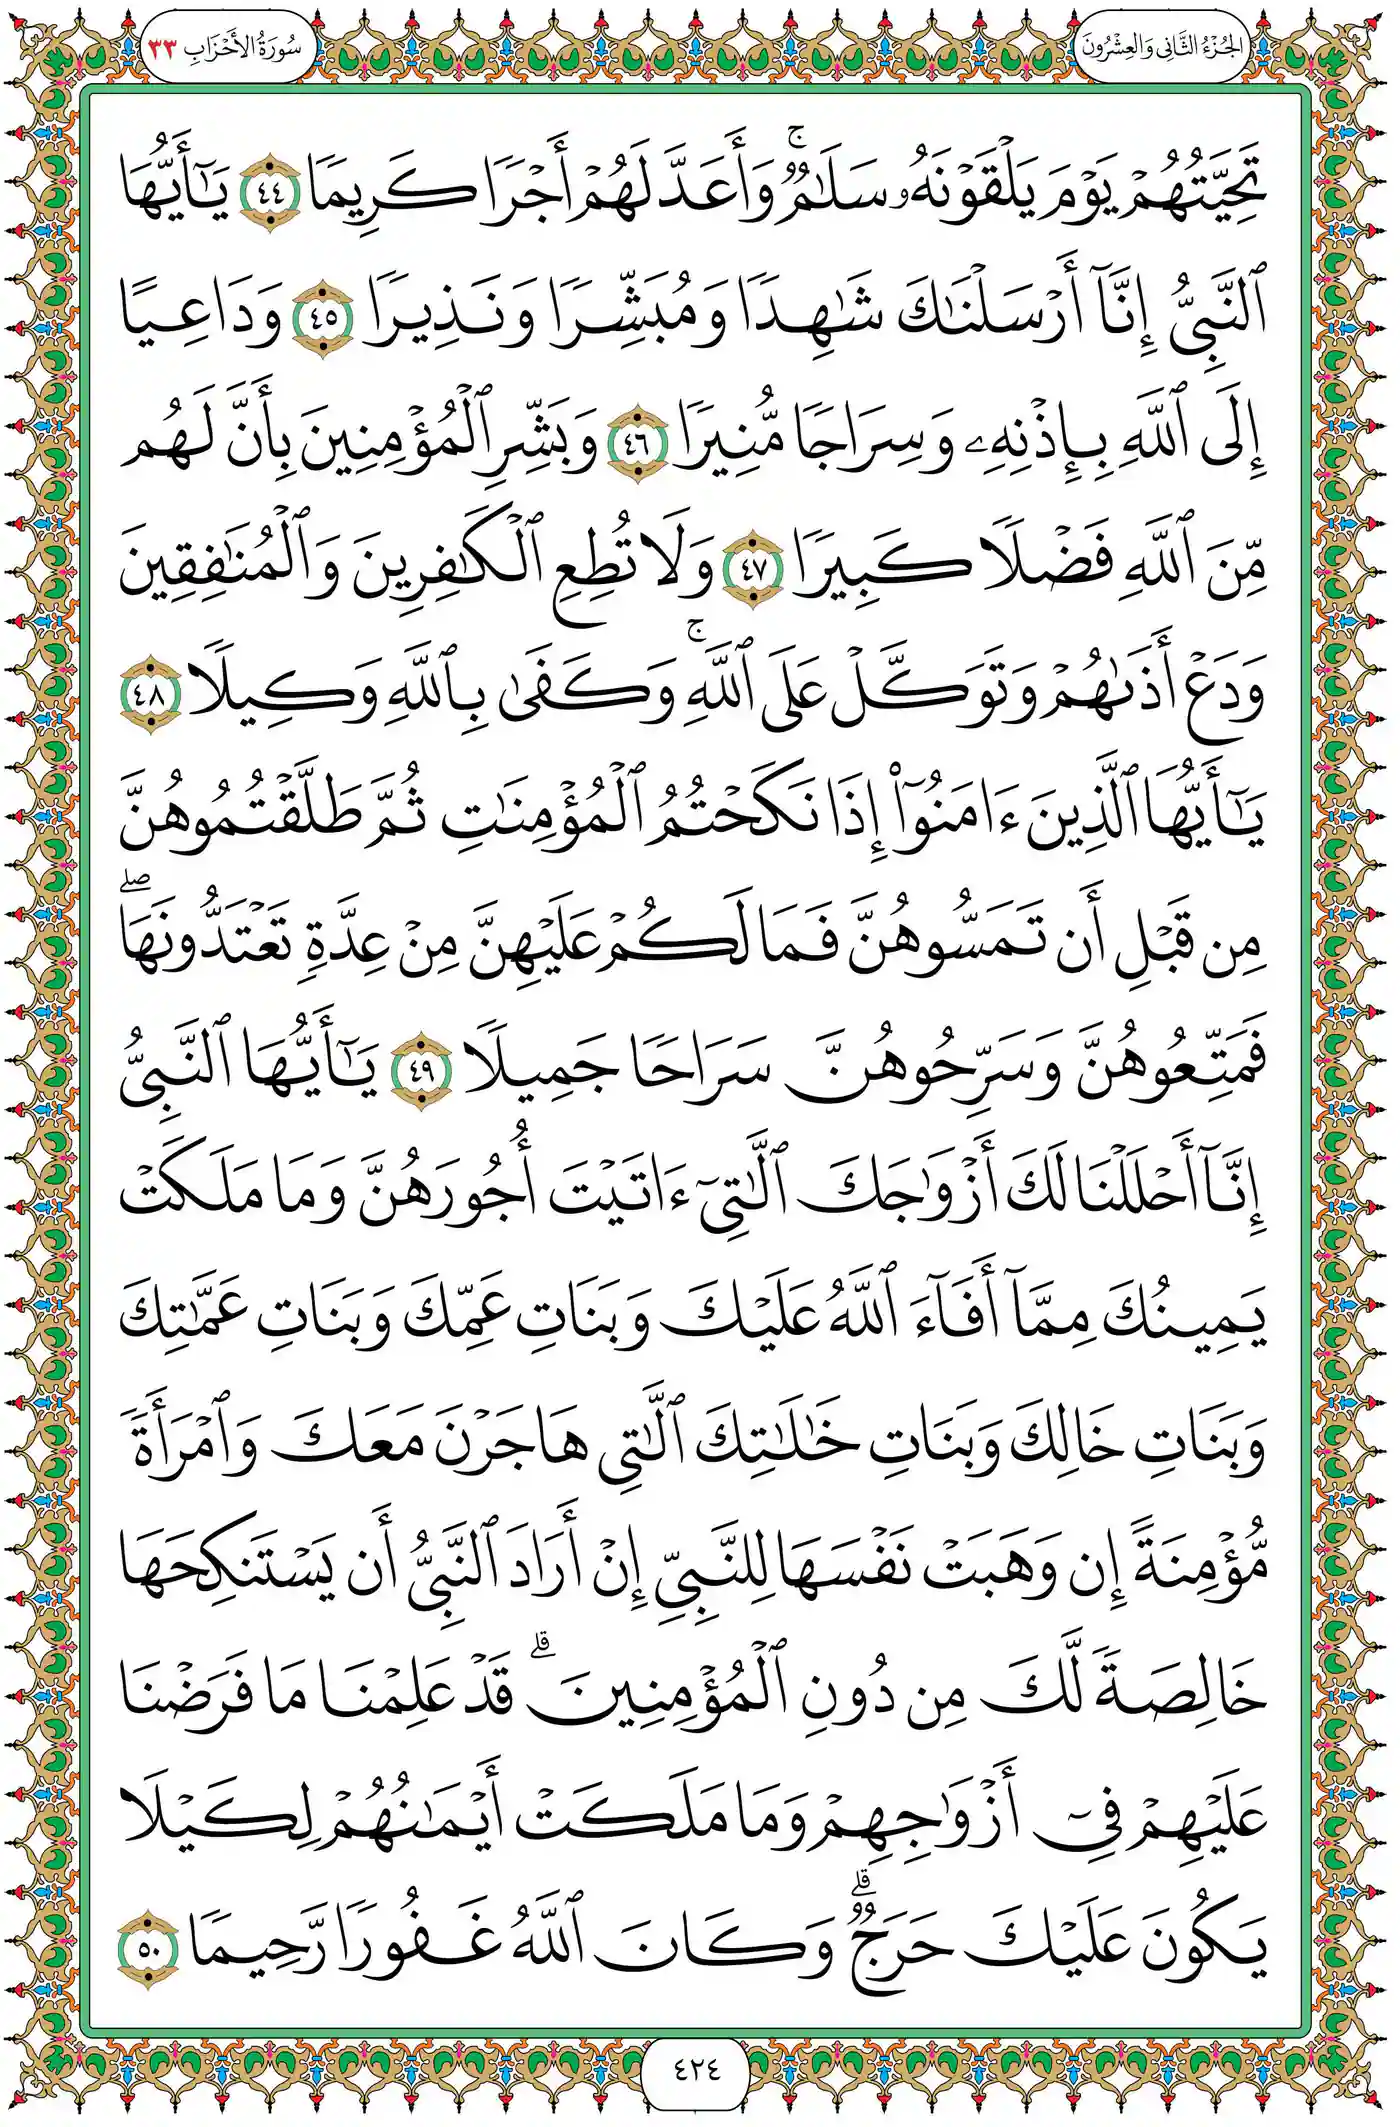 الجُزْءُ الثَّانِي وَالعِشْرُونَ
سُورَةُ الأَحْزَابِ ٣٣
تَحِيَّتُهُمۡ يَوۡمَ يَلۡقَوۡنَهُۥ سَلَٰمٞۚ وَأَعَدَّ لَهُمۡ أَجۡرٗا كَرِيمٗا ٤٤ يَٰٓأَيُّهَا
ٱلنَّبِيُّ إِنَّآ أَرۡسَلۡنَٰكَ شَٰهِدٗا وَمُبَشِّرٗا وَنَذِيرٗا ٤٥ وَدَاعِيًا
إِلَى ٱللَّهِ بِإِذۡنِهِۦ وَسِرَاجٗا مُّنِيرٗا ٤٦ وَبَشِّرِ ٱلۡمُؤۡمِنِينَ بِأَنَّ لَهُم
مِّنَ ٱللَّهِ فَضۡلٗا كَبِيرٗا ٤٧ وَلَا تُطِعِ ٱلۡكَٰفِرِينَ وَٱلۡمُنَٰفِقِينَ
وَدَعۡ أَذَىٰهُمۡ وَتَوَكَّلۡ عَلَى ٱللَّهِۚ وَكَفَىٰ بِٱللَّهِ وَكِيلٗا ٤٨
يَٰٓأَيُّهَا ٱلَّذِينَ ءَامَنُوٓاْ إِذَا نَكَحۡتُمُ ٱلۡمُؤۡمِنَٰتِ ثُمَّ طَلَّقۡتُمُوهُنَّ
مِن قَبۡلِ أَن تَمَسُّوهُنَّ فَمَا لَكُمۡ عَلَيۡهِنَّ مِنۡ عِدَّةٖ تَعۡتَدُّونَهَاۖ
فَمَتِّعُوهُنَّ وَسَرِّحُوهُنَّ سَرَاحٗا جَمِيلٗا ٤٩ يَٰٓأَيُّهَا ٱلنَّبِيُّ
إِنَّآ أَحۡلَلۡنَا لَكَ أَزۡوَٰجَكَ ٱلَّٰتِيٓ ءَاتَيۡتَ أُجُورَهُنَّ وَمَا مَلَكَتۡ
يَمِينُكَ مِمَّآ أَفَآءَ ٱللَّهُ عَلَيۡكَ وَبَنَاتِ عَمِّكَ وَبَنَاتِ عَمَّٰتِكَ
وَبَنَاتِ خَالِكَ وَبَنَاتِ خَٰلَٰتِكَ ٱلَّٰتِي هَاجَرۡنَ مَعَكَ وَٱمۡرَأَةٗ
مُّؤۡمِنَةً إِن وَهَبَتۡ نَفۡسَهَا لِلنَّبِيِّ إِنۡ أَرَادَ ٱلنَّبِيُّ أَن يَسۡتَنكِحَهَا
خَالِصَةٗ لَّكَ مِن دُونِ ٱلۡمُؤۡمِنِينَۗ قَدۡ عَلِمۡنَا مَا فَرَضۡنَا
عَلَيۡهِمۡ فِيٓ أَزۡوَٰجِهِمۡ وَمَا مَلَكَتۡ أَيۡمَٰنُهُمۡ لِكَيۡلَا
يَكُونَ عَلَيۡكَ حَرَجٞۗ وَكَانَ ٱللَّهُ غَفُورٗا رَّحِيمٗا ٥٠
٤٢٤